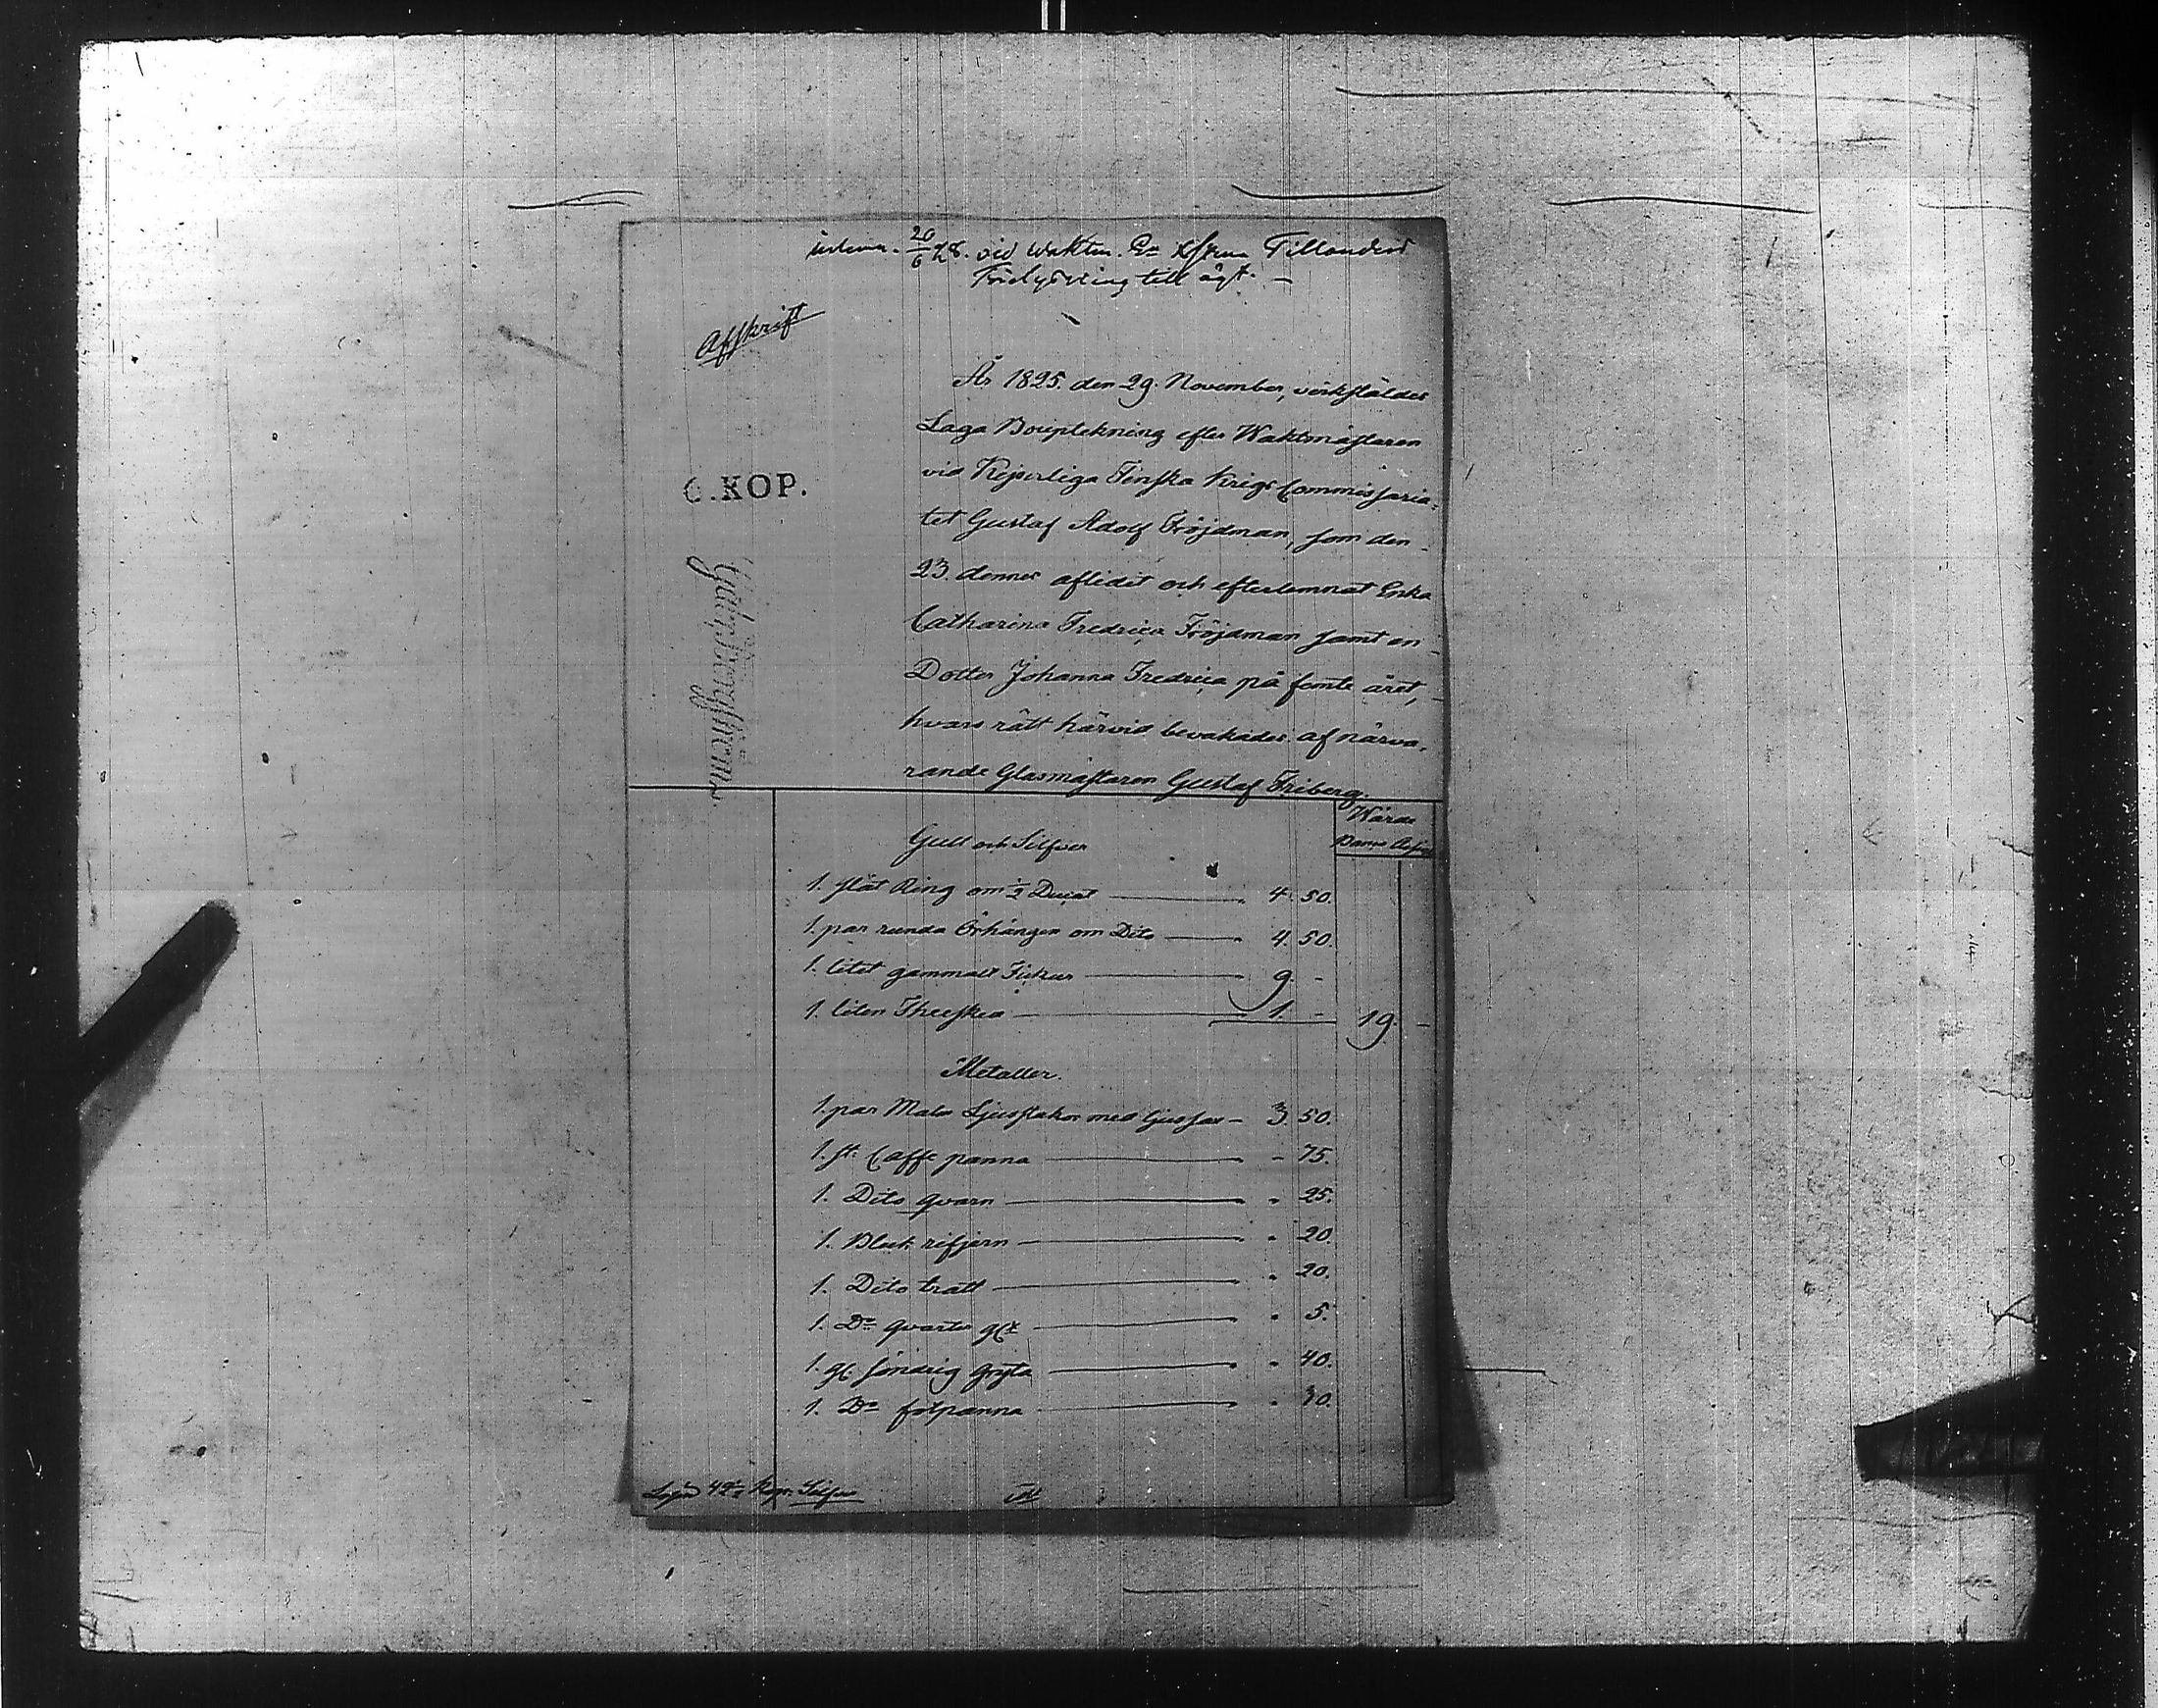 20/6 28. vid Waktm. En Tillanders
till ägt.
Afskrift
År 1825 den 29. November, verkställdes
Laga Bouptekning efter Waktmästaren
vid Kejserliga Finska Krigs Commissaria-
tet Gustaf Adolf Fröjdman, som den
23. dennes aflidit och efterlemnat Enka
Catharina Fredrica Fröjdman samt en
Dotter Johanna Fredrica på femte året,
hvars rätt härvid bevakades af närva-
rande Glasmästaren Gustaf Friberg.
C.KOP.
Wärde
Banco Assign
Gull och Silfver
1. slät Ring om 1/2 Ducat 4. 50.
1. par runda Örhängen om Dito 4. 50.
1. litet gammalt 9. -
1. liten Theesked 1. - 19. -
Metaller.
1. par Malm Ljusstakar med ljussax - 3. 50.
1. st. Caffe panna - 75.
1. Dito qvarn " 25.
1. Bleck rifjern " 20.
1. Dito tratt " 20.
1. Do qvarter " 5.
1. gl. söndrig gryta " 40.
1. Do fotpanna " 30.
Kop. Silfver